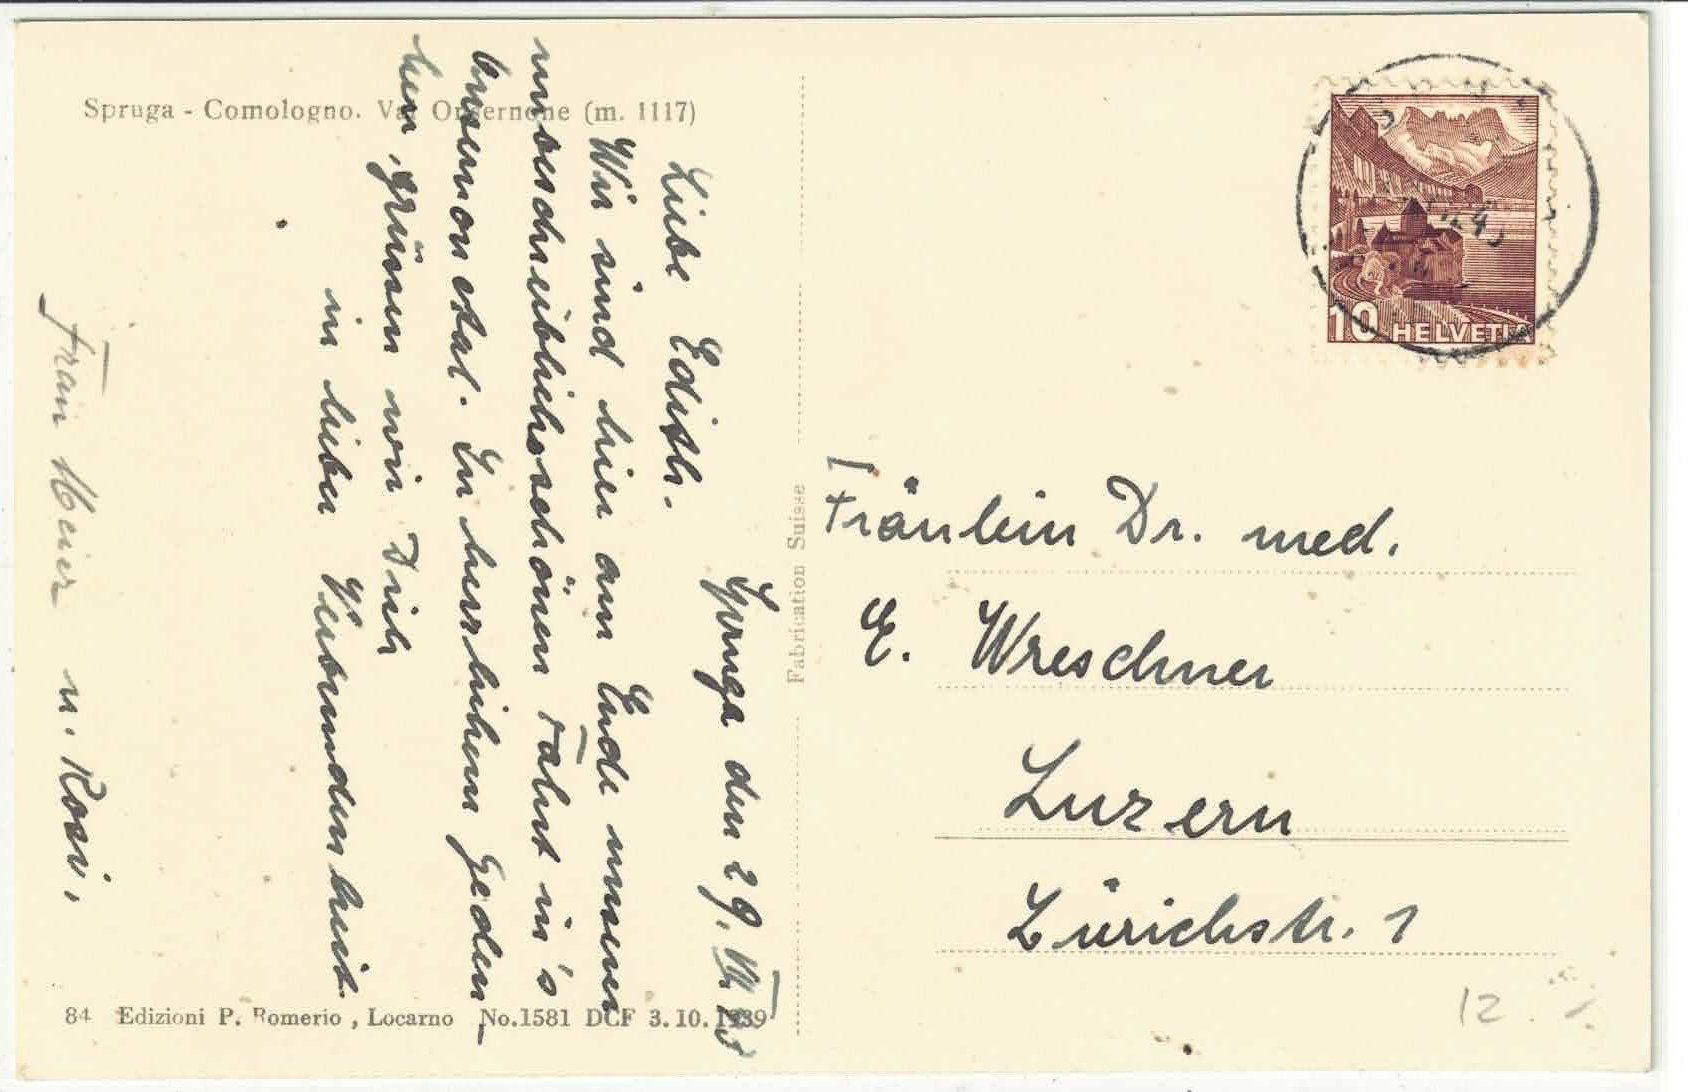 Spruga - Comologno. Val Onsernone (m. 1117)
Spruga den 29. VII 43
Liebe Edith.
Wir sind hier am Ende unserer
unbeschreiblichschönen Fahrt in's
Onsernonetal. In herzlichem Geden-
ken, grüssen wir Dich
in lieber Verbundenheit
Frau Meier u. Rosi.
84 Edizioni P. Romerio, Locarno No.1581 DCF 3.10.1939
Fabrication Suisse
10 HELVETIA
Fräulein Dr. med.
E. Wreschner
Luzern
Zürichstr. 1
12.